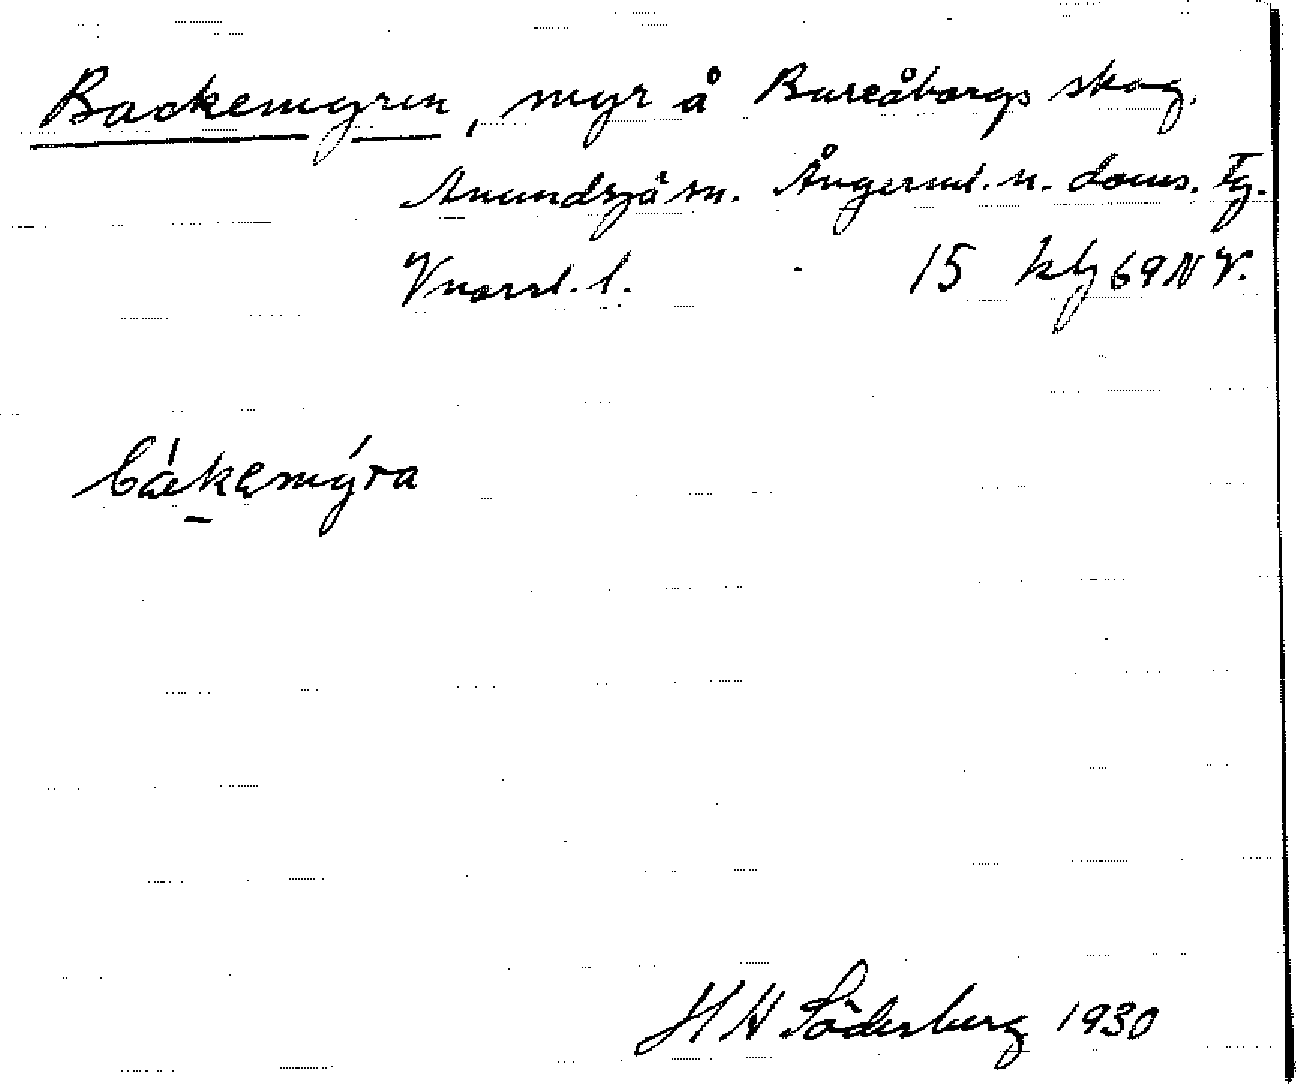 Backemyren, myr å Bureåborgs skog.
Anundsjö sn. Ångerml. n. doms. Fg.
Vnorrl. l. 15 kbl 69 N V.
báckemýra
H H Söderberg 1930